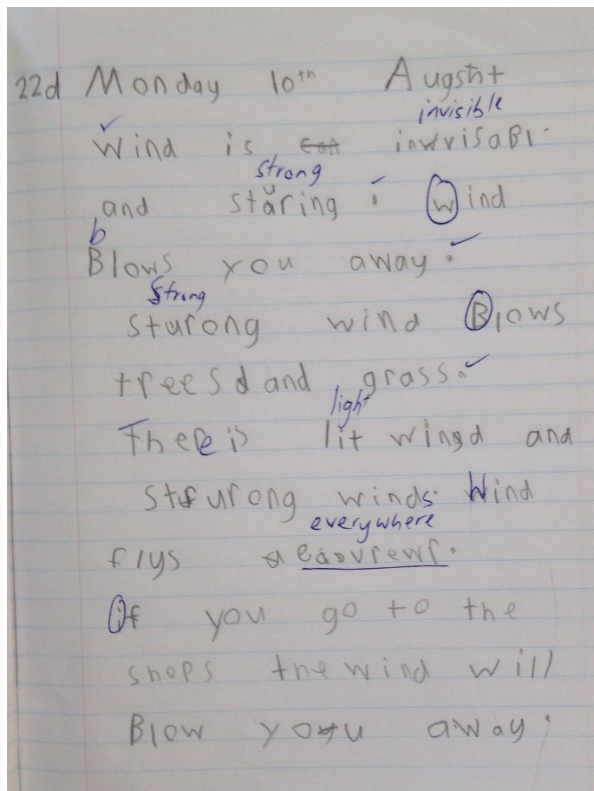 22d Monday 10th Augsht
invisible
Wind is invrisabl.
strong
and staring. Wind
b
Blows you away.
Strong
sturong wind Blows
trees and grass.
light
There is lit wingd and
sturong winds. Wind
everywhere
flys eaovrewr.
If you go to the
shops the wind will
Blow you away.